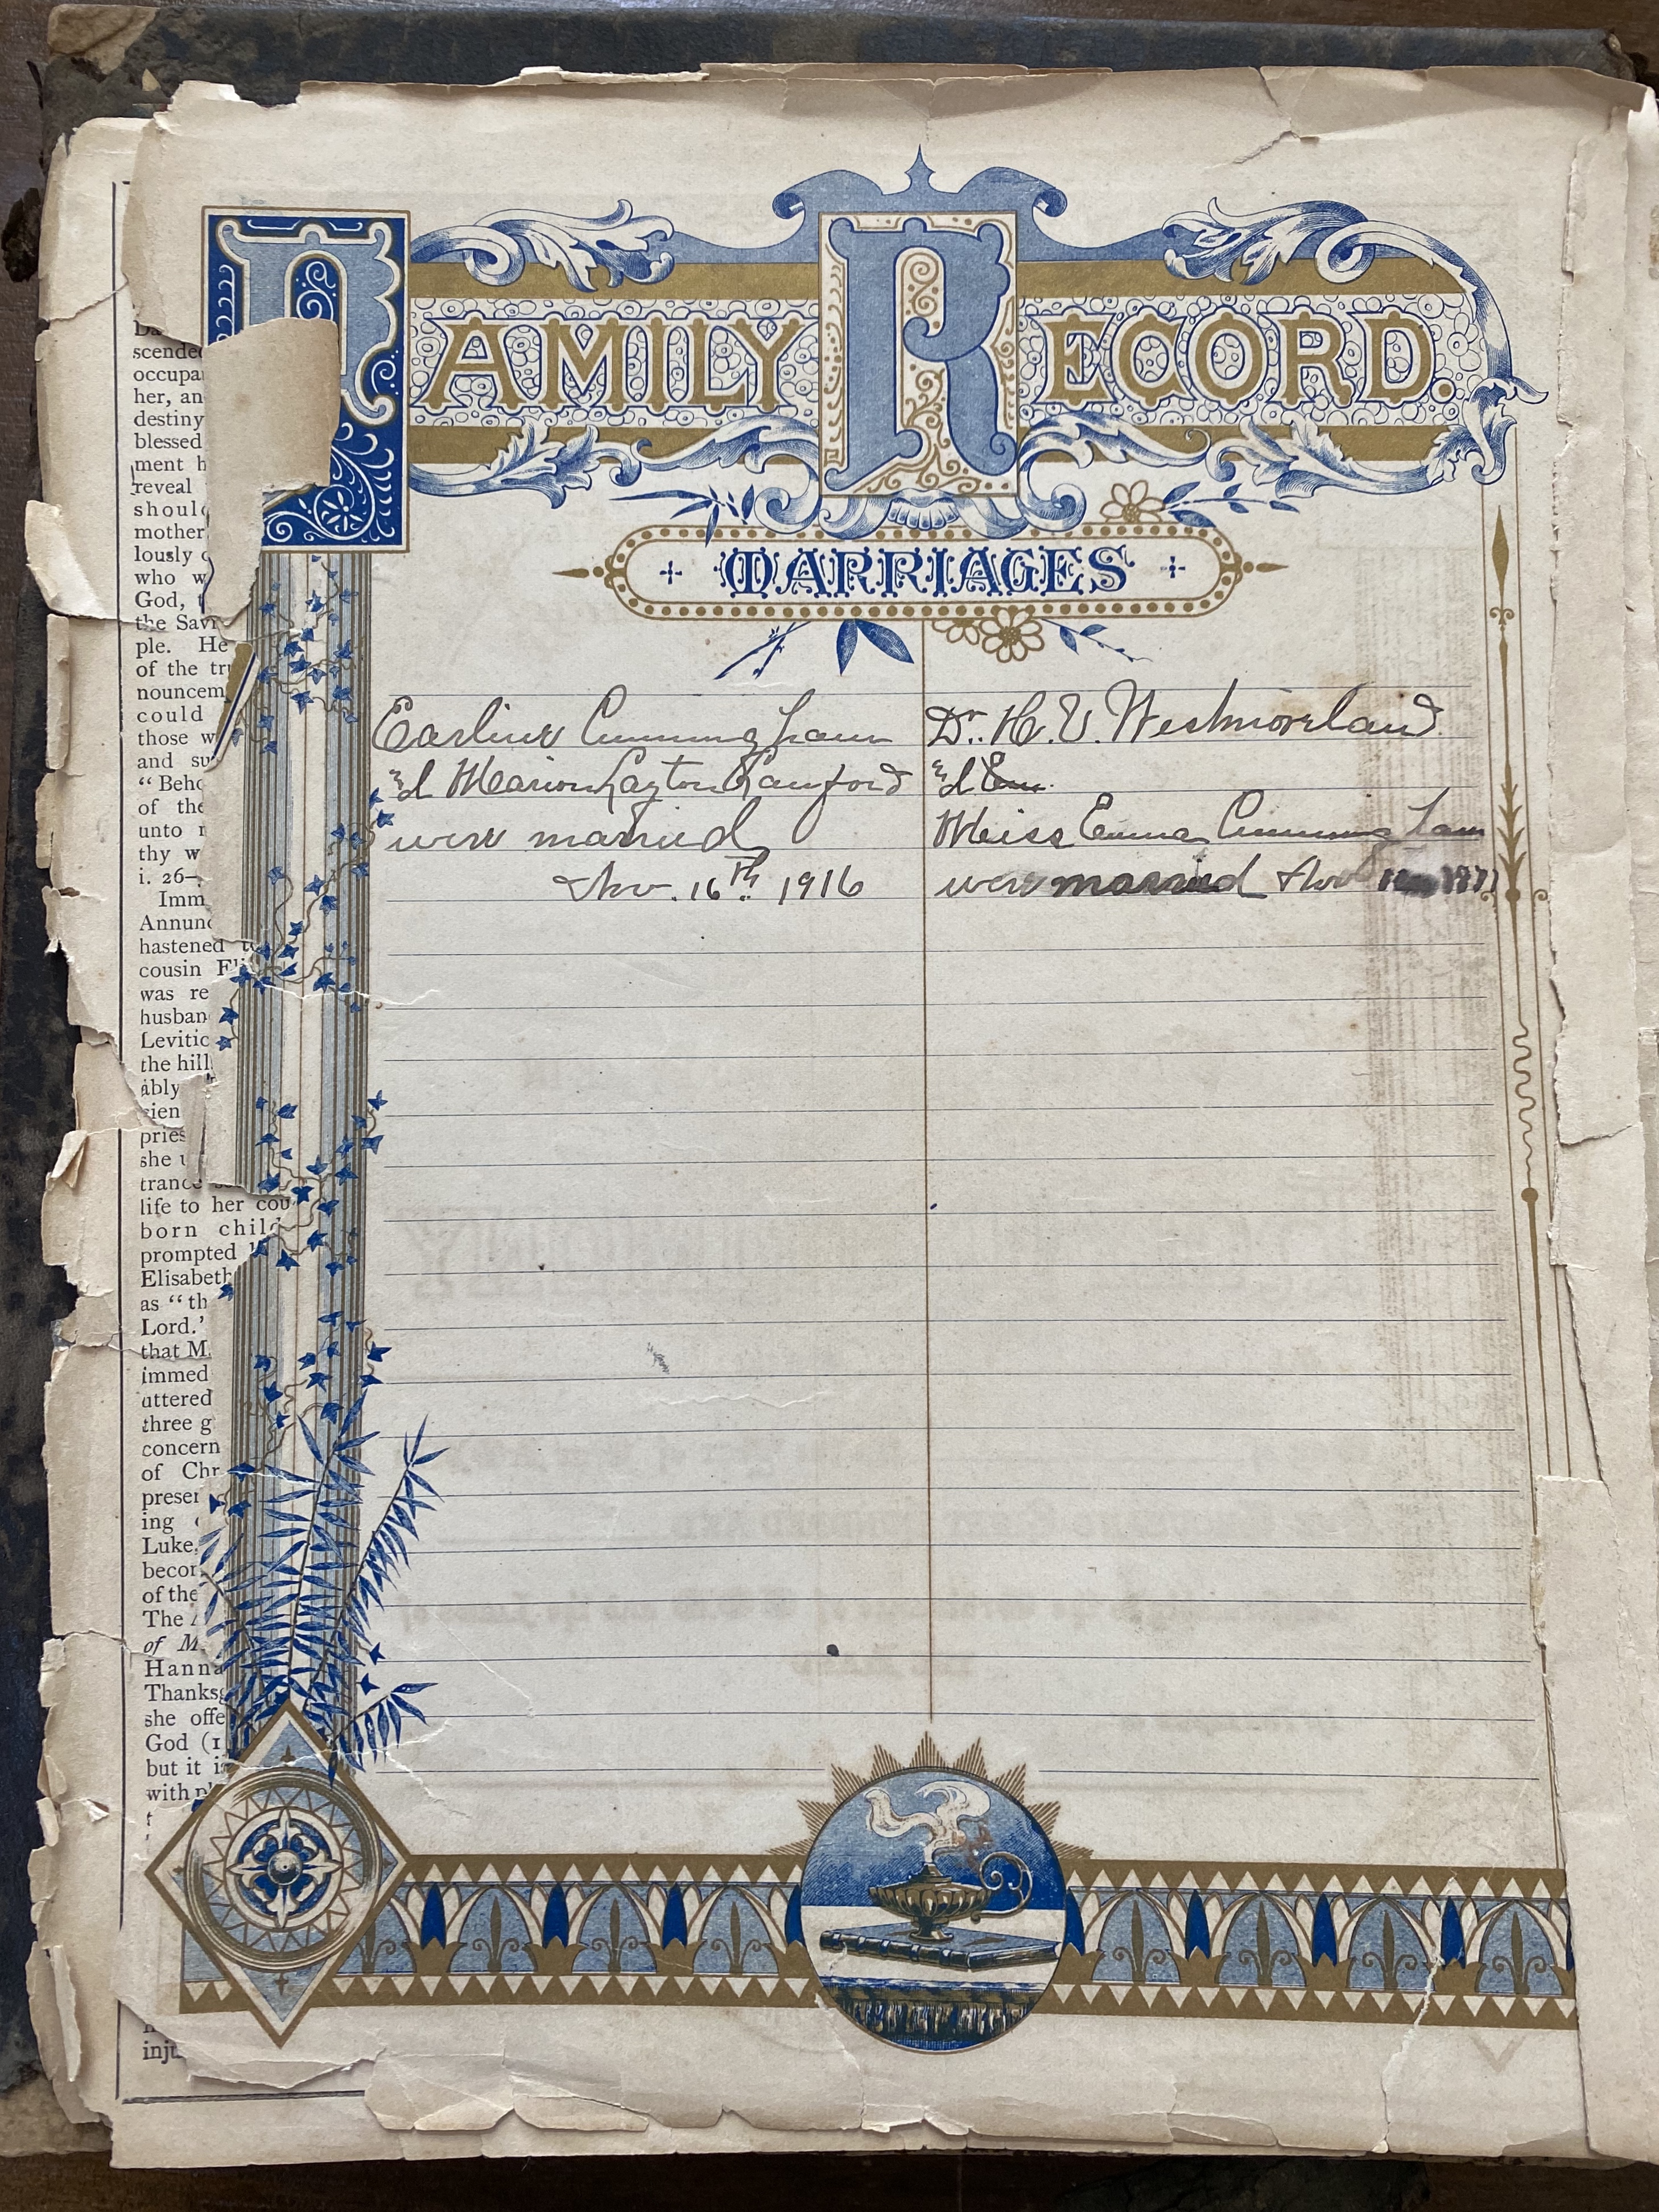 FAMILY RECORD.
MARRIAGES
Earline Cunningham
& Marion Layton Lanford
were married
Nov. 16th 1916
Dr. H. V. Westmoreland
&
Miss Emma Cunningham
were married Nov
scended
occupa
her, an
destiny
blessed
ment h
reveal
should
mother
lously
who w
God,
the Savi
ple. He
of the tr
nouncem
could
those w
and su
"Beho
of the
unto
thy w
i. 26–
Imm
Annunc
hastened to
cousin Eli
was re
husban
Levitic
the hill
ably
pries
she
trance
life to her cou
born child
prompted
Elisabeth
as "th
Lord.'
that M
immed
uttered
three g
concern
of Chr
presen
ing
Luke,
becom
of the
The
of M
Hanna
Thanksg
she offe
God (1
but it is
with pl
inju